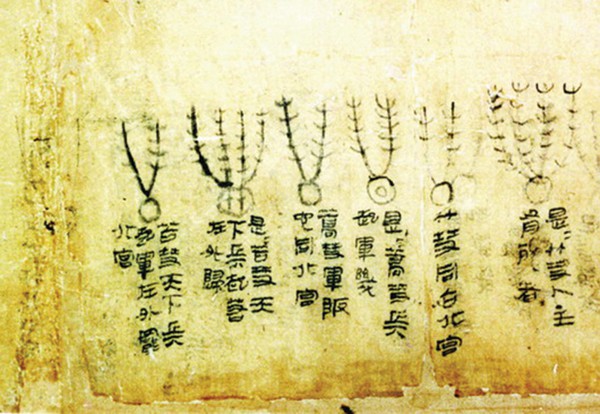 是=竹彗人主
有死者
竹彗同占北宫
是=蒿彗兵
起軍幾
蒿彗軍阪
它同北宫
是=苫彗天
下兵起若
在外歸
苫彗天下兵
起軍在外罷
北宫